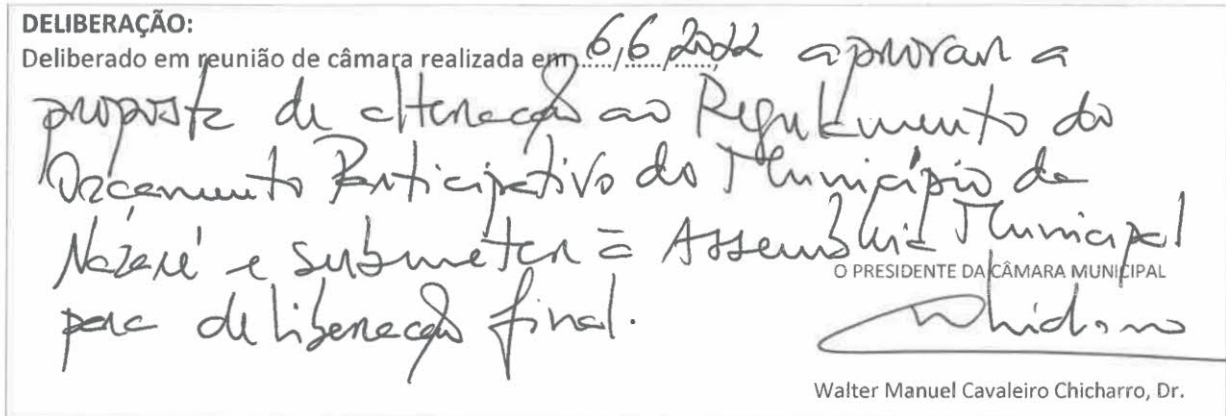 DELIBERAÇÃO:
Deliberado em reunião de câmara realizada em 6/6/2022 aprovar a
proposta de alteração ao Regulamento do
Orçamento Participativo do Município da
Nazaré e submeter à Assembleia Municipal
O PRESIDENTE DA CÂMARA MUNICIPAL
para deliberação final.
Chicharro
Walter Manuel Cavaleiro Chicharro, Dr.